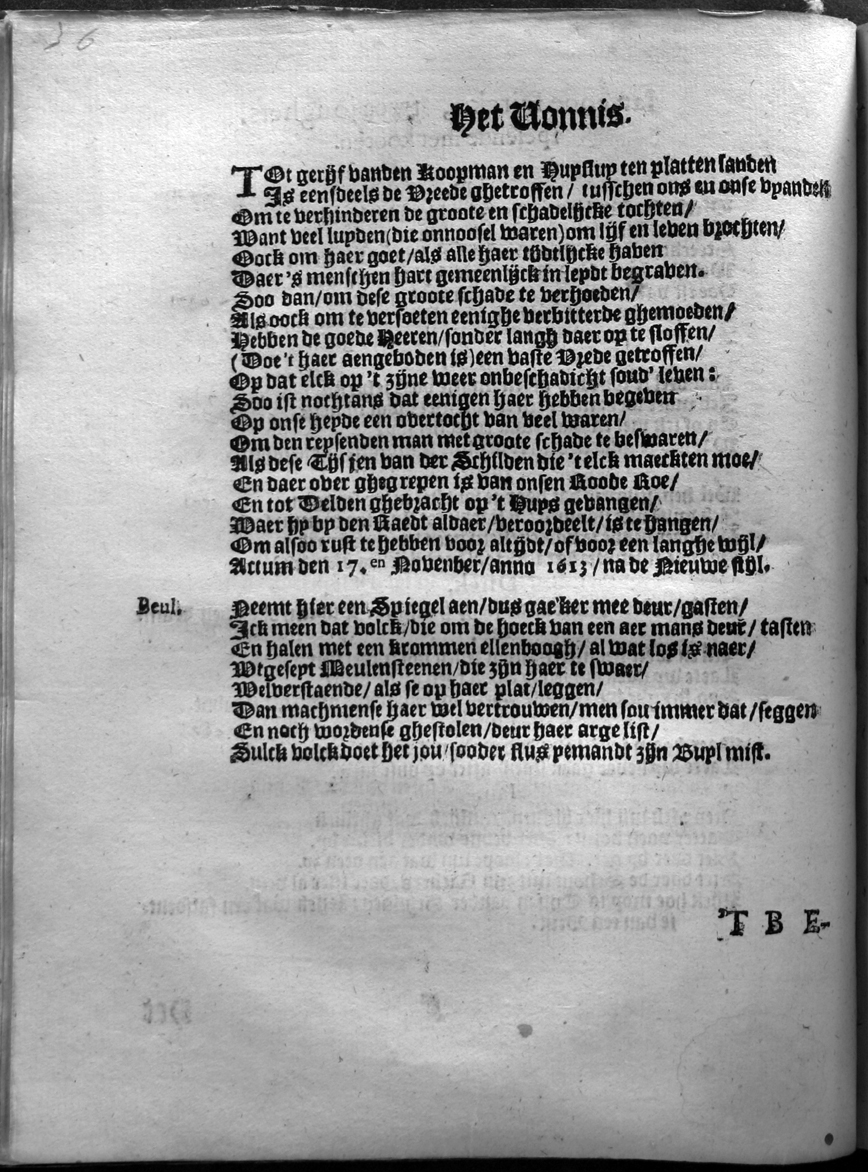 36
Het Vonnis.
TOt gerijf vanden Koopman en Huysluy ten platten landen
Is eensdeels de Vreede ghetroffen / tusschen ons en onse vyanden
Om te verhinderen de groote en schadelijcke tochten /
Want veel luyden (die onnoosel waren) om lijf en leven brochten /
Oock om haer goet / als alle haer tijdtlijcke haven
Daer 's menschen hart gemeenlijck in leydt begraven.
Soo dan / om dese groote schade te verhoeden /
Als oock om te versoeten eenighe verbitterde ghemoeden /
Hebben de goede Heeren / sonder langh daer op te sloffen /
(Doe 't haer aengeboden is) een vaste Vrede getroffen /
Op dat elck op 't zijne weer onbeschadicht soud' leven :
Soo ist nochtans dat eenigen haer hebben begeven
Op onse heyde een overtocht van veel waren /
Om den reysenden man met groote schade te beswaren /
Als dese Tijsjen van der Schilden die 't elck maeckten moe /
En daer over ghegrepen is van onsen Roode Roe /
En tot Delden ghebracht op 't Huys gevangen /
Waer hy by den Raedt aldaer / veroordeelt / is te hangen /
Om alsoo rust te hebben voor altijdt / of voor een langhe wijl /
Actum den 17.en November / anno 1613 / na de Nieuwe stijl.
Beul. Neemt hier een Spiegel aen / dus gae'ker mee deur / gasten /
Ick meen dat volck / die om de hoeck van een aer mans deur / tasten
En halen met een krommen ellenboogh / al wat los is naer /
Wtgeseyt Meulensteenen / die zijn haer te swaer /
Welverstaende / als se op haer plat / leggen /
Dan machmense haer wel vertrouwen / men sou immer dat / seggen
En noch wordense ghestolen / deur haer arge list /
Sulck volck doet het jou / sooder flus yemandt zijn Buyl mist.
'T B E-